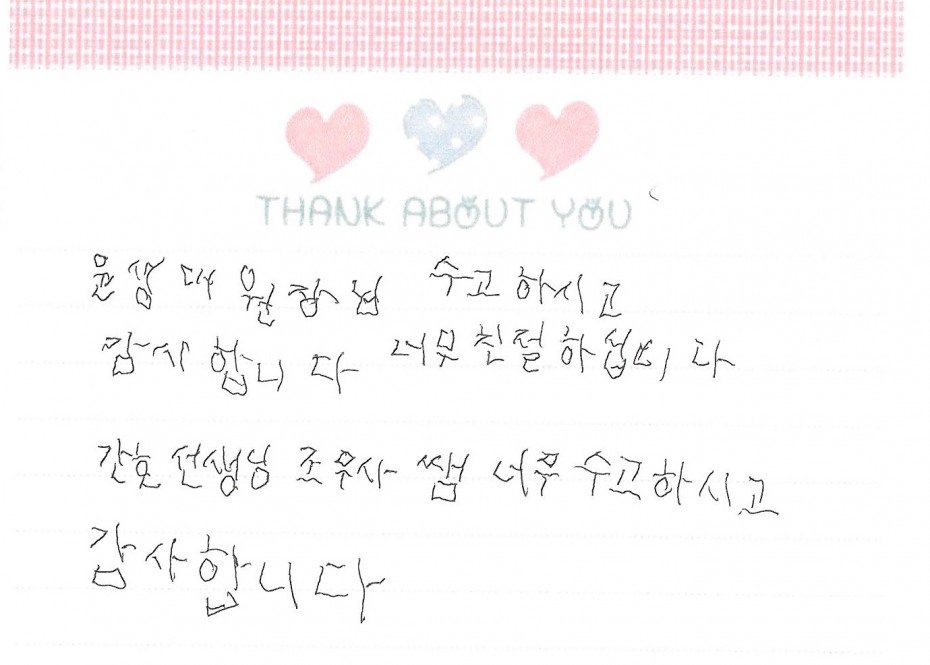 THANK ABOUT YOU
윤상대 원장님 수고하시고
감사합니다 너무 친절하섭니다
간호 선생님 조무사 쌤 너무 수고하시고
감사합니다